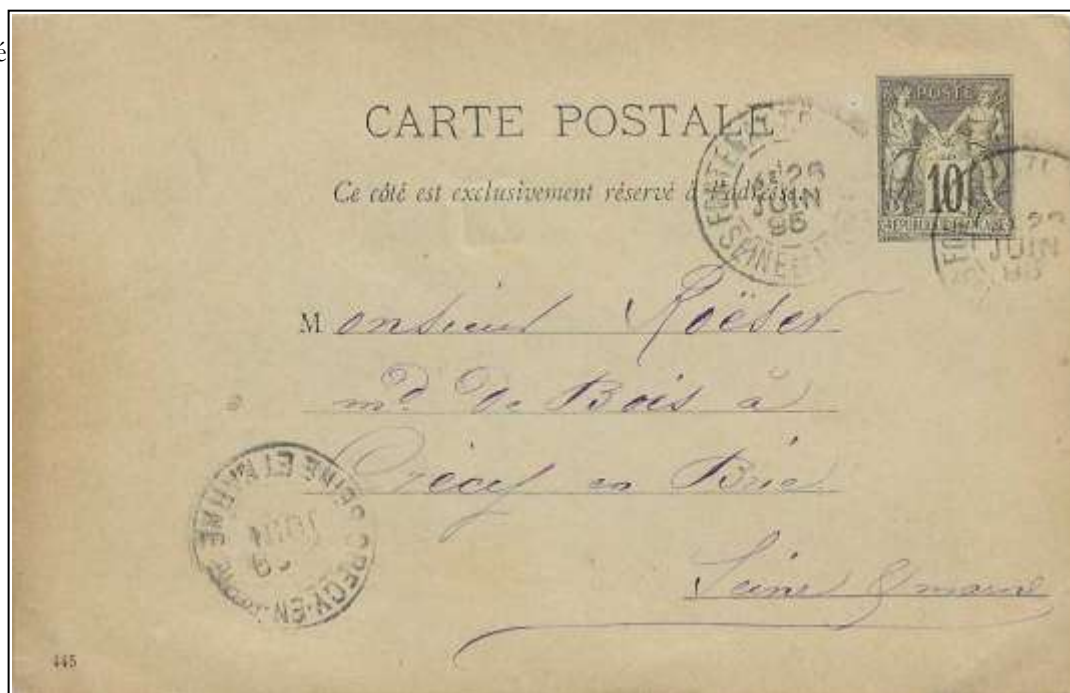 é
CARTE POSTALE
Ce côté est exclusivement réservé à l'adresse.
POSTE
10
REPUBLIQUE FRANCAISE
JUIN
95
SEINE ET
JUIN
Monsieur Roëser
md de Bois à
Crécy en Brie
Seine & marne
CRECY-EN-
SEINE ET MARNE
JUIN
445